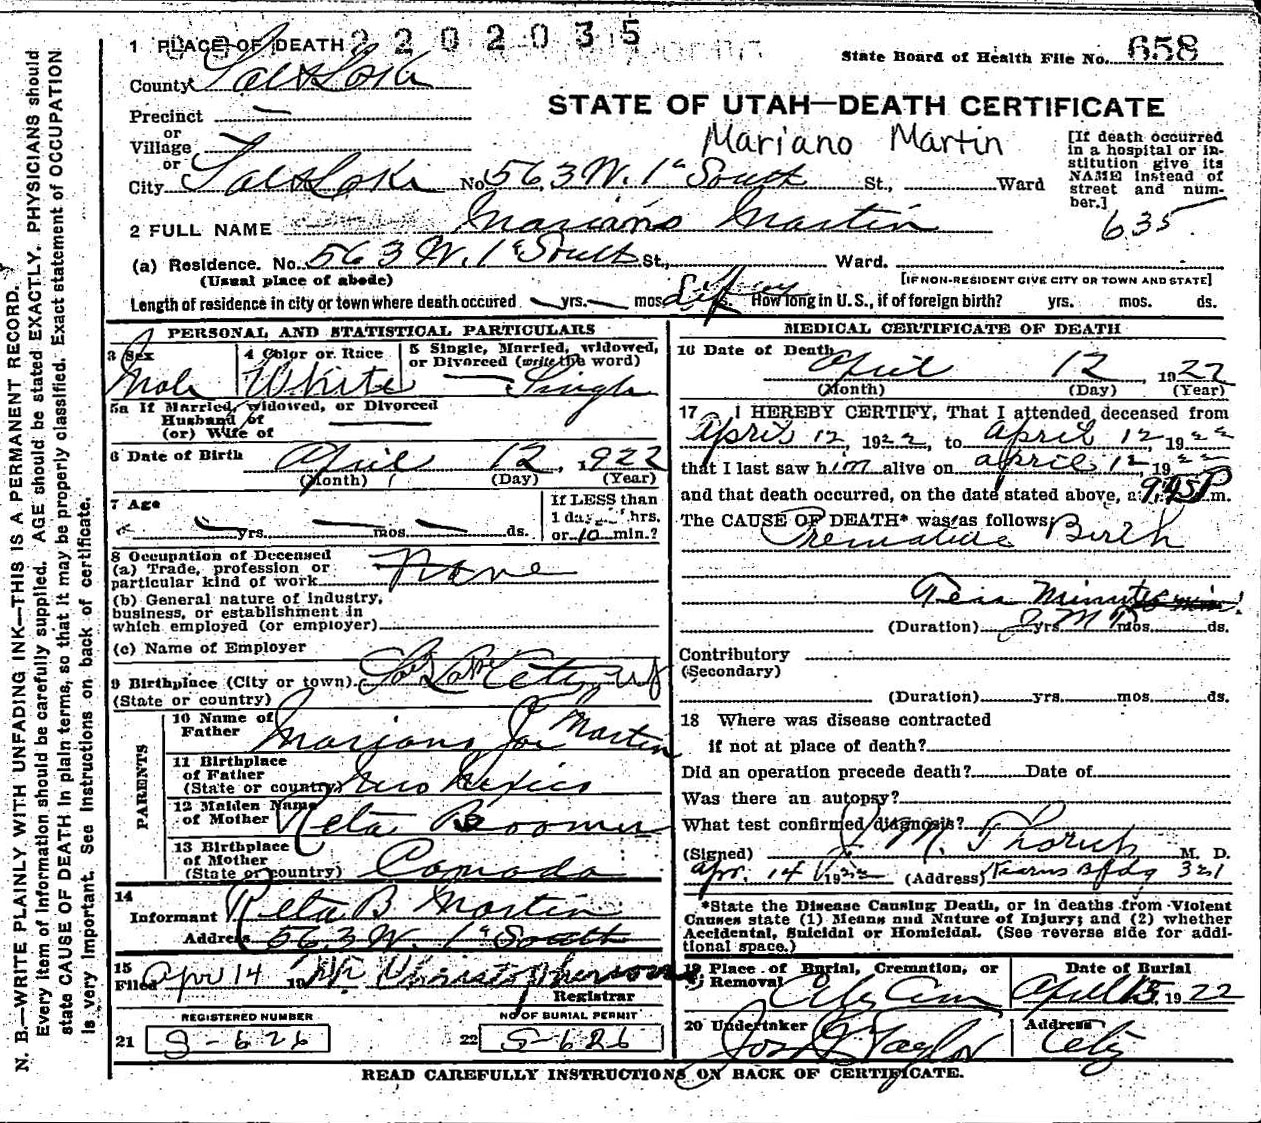 1 PLACE OF DEATH 2202035
State Board of Health File No. 658
County Salt Lake
STATE OF UTAH—DEATH CERTIFICATE
Precinct —
or
Village
or
Mariano Martin
[If death occurred in a hospital or institution give its NAME instead of street and number.]
City Salt Lake No. 563 W. 1st South St., Ward
635
2 FULL NAME Mariano Martin
(a) Residence. No. 563 W. 1st South St., Ward.
(Usual place of abode) [IF NON-RESIDENT GIVE CITY OR TOWN AND STATE]
Length of residence in city or town where death occured — yrs. — mos. Life ds. How long in U.S., if of foreign birth? yrs. mos. ds.
PERSONAL AND STATISTICAL PARTICULARS
3 Sex Male
4 Color or Race White
5 Single, Married, widowed, or Divorced (write the word) — Single
5a If Married, widowed, or Divorced
Husband of
(or) Wife of —
6 Date of Birth April 12, 1922
(Month) (Day) (Year)
7 Age — yrs. — mos. — ds.
If LESS than
1 day hrs.
or 10 min.?
8 Occupation of Deceased
(a) Trade, profession or
particular kind of work None
(b) General nature of industry,
business, or establishment in
which employed (or employer)
(c) Name of Employer
9 Birthplace (City or town)
(State or country)
PARENTS
10 Name of Father Mariano Joe Martin
11 Birthplace of Father (State or country) New Mexico
12 Maiden Name of Mother Reta
13 Birthplace of Mother (State or country) Canada
14
Informant Reta B Martin
Address 563 W. 1st South
15
Filed Apr 14 19
Registrar
REGISTERED NUMBER
21 S-626
NO OF BURIAL PERMIT
22 S-626
MEDICAL CERTIFICATE OF DEATH
16 Date of Death April 12, 1922
(Month) (Day) (Year)
17 I HEREBY CERTIFY, That I attended deceased from
April 12, 1922, to April 12, 1922
that I last saw him alive on April 12, 1922
and that death occurred, on the date stated above, at 9:45 P m.
The CAUSE OF DEATH* was as follows:
Premature Birth
Ten Minutes
(Duration) yrs. mos. ds.
Contributory
(Secondary)
(Duration) yrs. mos. ds.
18 Where was disease contracted
if not at place of death?
Did an operation precede death? Date of
Was there an autopsy?
What test confirmed diagnosis?
(Signed) J. M. M. D.
Apr. 14, 1922 (Address) Kearns Bldg 321
*State the Disease Causing Death, or in deaths from Violent
Causes state (1) Means and Nature of Injury; and (2) whether
Accidental, Suicidal or Homicidal. (See reverse side for additional space.)
19 Place of Burial, Cremation, or Removal City Cem
Date of Burial April 15, 1922
20 Undertaker Jos Taylor
Address City
READ CAREFULLY INSTRUCTIONS ON BACK OF CERTIFICATE.
N. B.—WRITE PLAINLY WITH UNFADING INK—THIS IS A PERMANENT RECORD.
Every item of information should be carefully supplied. AGE should be stated EXACTLY. PHYSICIANS should
state CAUSE OF DEATH in plain terms, so that it may be properly classified. Exact statement of OCCUPATION
is very important. See Instructions on back of certificate.